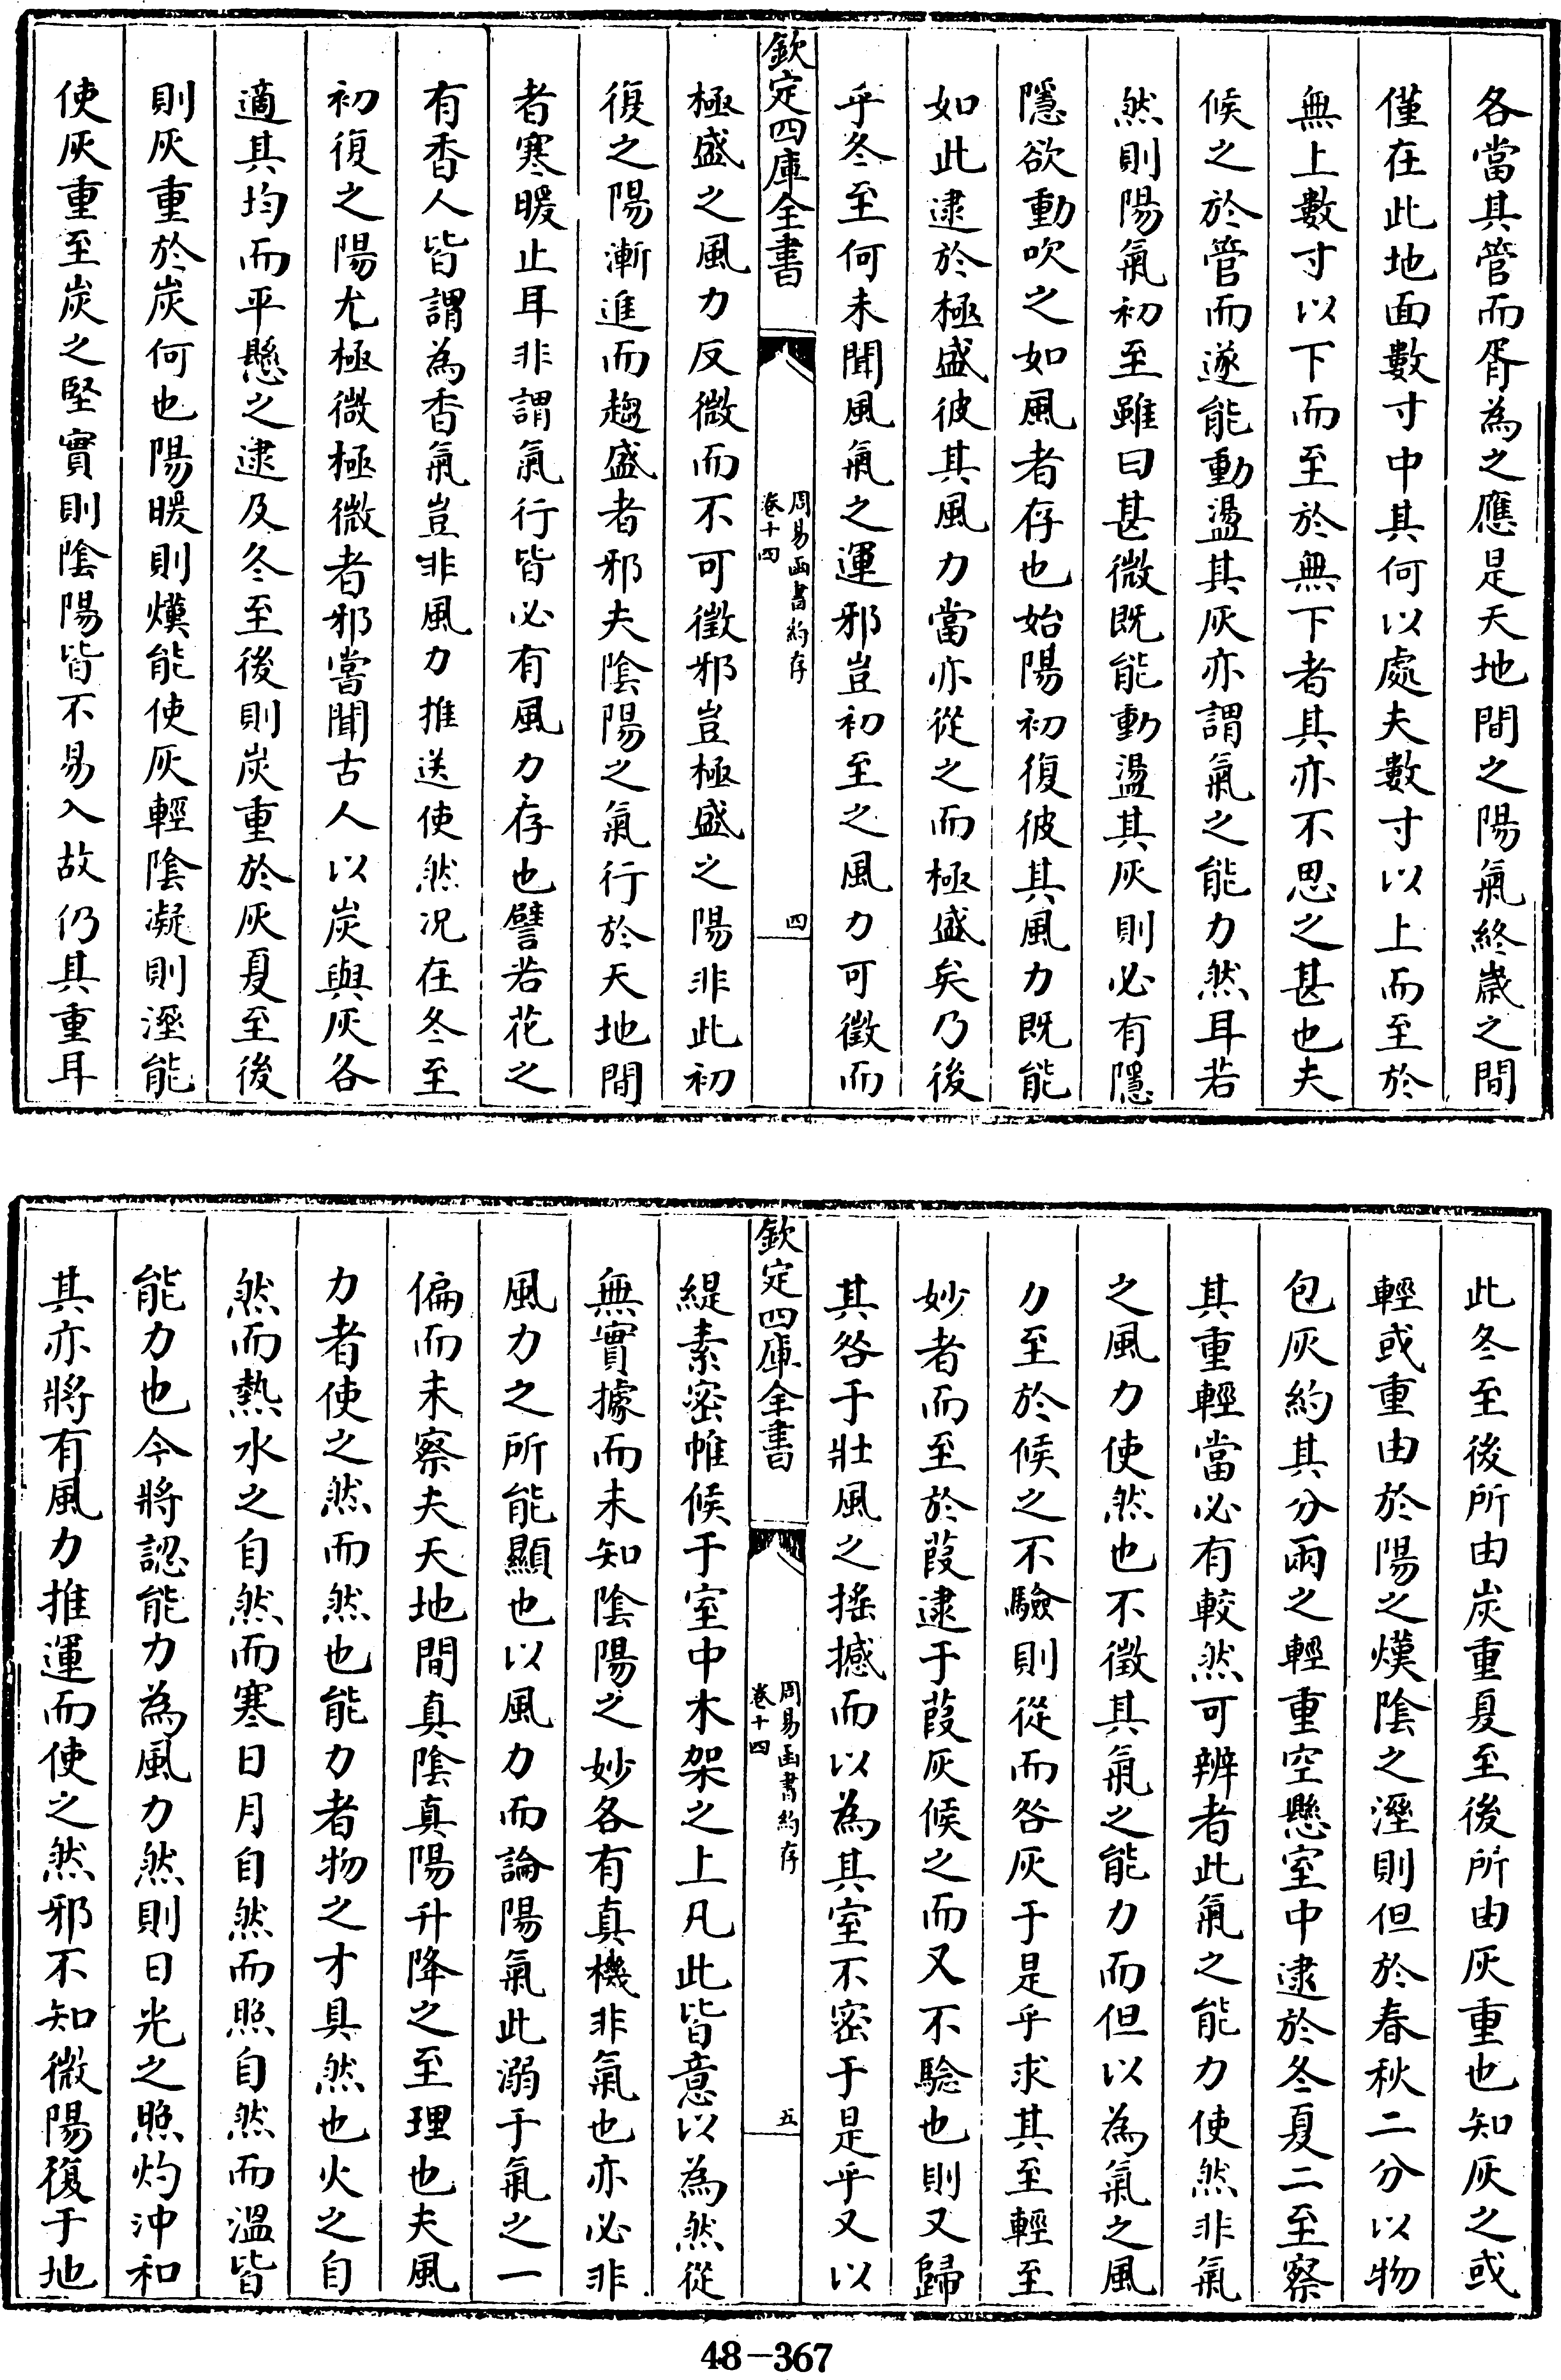 各當其管而胥為之應是天地間之陽氣終歲之間
僅在此地面數寸中其何以處夫數寸以上而至於
無上數寸以下而至於無下者其亦不思之甚也夫
候之於管而遂能動盪其灰亦謂氣之能力然耳若
然則陽氣初至雖曰甚微既能動盪其灰則必有隱
隱欲動吹之如風者存也始陽初復彼其風力既能
如此逮於極盛彼其風力當亦從之而極盛矣乃後
乎冬至何未聞風氣之運邪豈初至之風力可徵而
欽定四庫全書
周易函書約存
卷十四
四
極盛之風力反微而不可徵邪豈極盛之陽非此初
復之陽漸進而趨盛者邪夫陰陽之氣行於天地間
者寒暖止耳非謂氣行皆必有風力存也譬若花之
有香人皆謂為香氣豈非風力推送使然况在冬至
初復之陽尤極微極微者邪嘗聞古人以炭與灰各
適其均而平懸之逮及冬至後則炭重於灰夏至後
則灰重於炭何也陽暖則熯能使灰輕陰凝則溼能
使灰重至炭之堅實則陰陽皆不易入故仍其重耳
此冬至後所由炭重夏至後所由灰重也知灰之或
輕或重由於陽之熯陰之溼則但於春秋二分以物
包灰約其分兩之輕重空懸室中逮於冬夏二至察
其重輕當必有較然可辨者此氣之能力使然非氣
之風力使然也不徵其氣之能力而但以為氣之風
力至於候之不驗則從而咎灰于是乎求其至輕至
妙者而至於葭逮于葭灰候之而又不驗也則又歸
其咎于壯風之搖撼而以為其室不密于是乎又以
欽定四庫全書
周易函書約存
卷十四
五
緹素密帷候于室中木架之上凡此皆意以為然從
無實據而未知陰陽之妙各有真機非氣也亦必非
風力之所能顯也以風力而論陽氣此溺于氣之一
偏而未察夫天地間真陰真陽升降之至理也夫風
力者使之然而然也能力者物之才具然也火之自
然而熱水之自然而寒日月自然而照自然而溫皆
能力也今將認能力為風力然則日光之照灼沖和
其亦將有風力推運而使之然邪不知微陽復于地
48-367